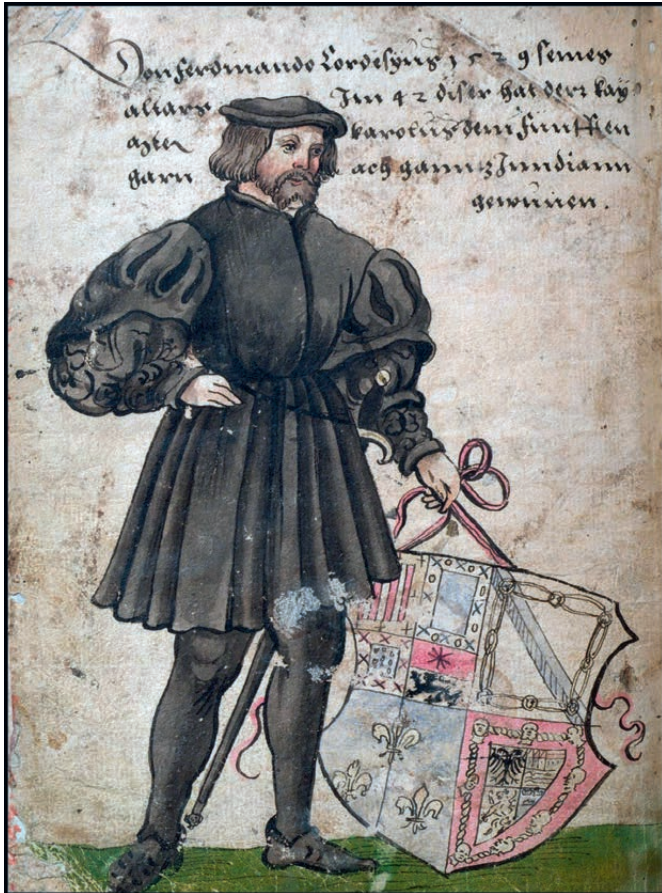 Don ferdmando Cordesyus 1529 seines
altars Im 42 diser hat derr kay
karolus dem funfften
garn ach ganntz Inndiann
gewunen.